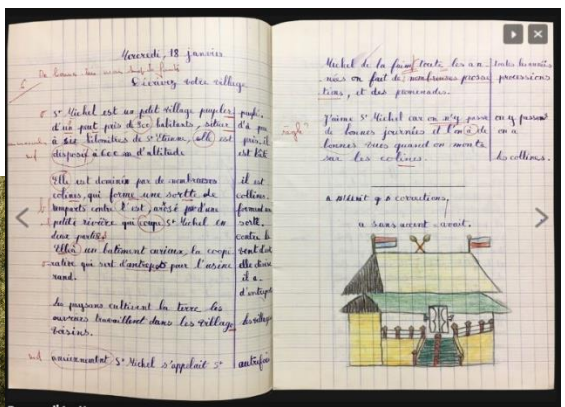 Mercredi, 18 janvier
Décrivez votre village
St Michel est un petit village peuples
d'un peut près de 300 habitants, situer
à six kilomètres de St Etienne, elle est
disposit à 600 m d'altitude
Elle est dominée par de nombreuses
colines, qui forme une sortte de
remparts contre l'est, arosé par d'une
petite rivière qui coupe St Michel en
deux parties.
un batiment curieux, la coopé
rative qui sert d'antrepots pour l'usine
rand.
Les paysans cultivent la terre les
ouvriers travaillent dans les village
voisins.
anciennement St Michel s'appelait St
peuplé.
d'à peu
près.
il est
collines
forment une
sorte.
contre le
vent d'est
elle divise
il a.
d'entrepôt
les villages
autrefois
Michel de la faim, toute les an
nées on fait de nombreuses prosse
tions, et des promenades.
J'aime St Michel car on n'y passe
de bonnes journées et l'on a de
bonnes vues quand on monte
sur les colines.
toutes les années
processions
on y passe
on a
les collines.
a sans accent = avoir.